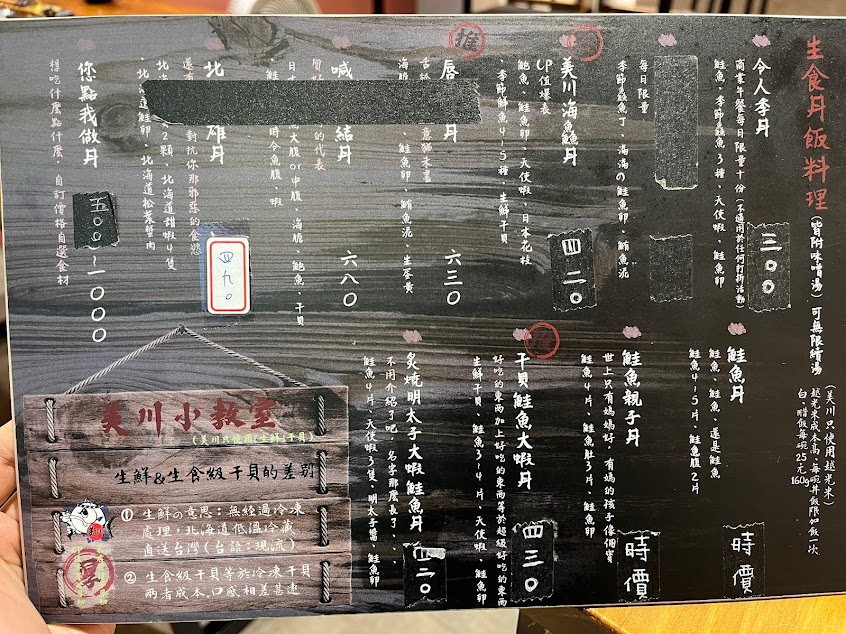 生食丼飯料理
(皆附味噌湯)可無限續湯
(美川只使用越光米)
越光米成本高,每碗丼飯限加飯一次
白、醋飯每碗25元160g
令人李丹
商業午餐每日限量十份(不適用於任何打折活動)
鮭魚、季節鮮魚3種、天使蝦、鮭魚卵
三00
每日限量
季節鮭魚丁、滿滿の鮭魚卵、鮪魚泥
美川海鱻丹
CP值爆表
鮑魚、鮭魚卵、天使蝦、日本花枝
、季節鮮魚4~5種、生鮮干貝
四二0
推
唇
丹
意猶未盡
、鮭魚卵、鮪魚泥、生蛋黃
六三0
喊
結丹
的代表
大腹or中腹、海膽、鮑魚、干貝
時令魚腹、蝦
六八0
北
雄丹
還有
對抗你那邪惡的食慾
2顆、北海道甜蝦4隻
鮭魚卵、北海道松葉蟹肉
四九0
您點我做丹
想吃什麼點什麼,自訂價格自選食材
五00~1000
鮭魚丹
鮭魚、鮭魚、還是鮭魚
鮭魚4~5片、鮭魚腹2片
時價
鮭魚親子丹
世上只有媽媽好,有媽的孩子像個寶
鮭魚4片、鮭魚肚3片、鮭魚卵
時價
干貝鮭魚大蝦丹
好吃的東西加上好吃的東西等於超級好吃的東西
生鮮干貝、鮭魚3~4片、天使蝦、鮭魚卵
四三0
炙燒明太子大蝦鮭魚丹
不用介紹了吧,名字那麼長了、、
鮭魚4片、天使蝦3隻、明太子醬、鮭魚卵
四二0
美川小教室
(美川只使用(生鮮)干貝)
生鮮&生食級干貝的差別
① 生鮮の意思:無經過冷凍
處理,北海道低溫冷藏
直送台灣(台語:現流)
② 生食級干貝等於冷凍干貝
兩者成本、口感相差甚遠